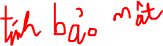 tính bảo mật